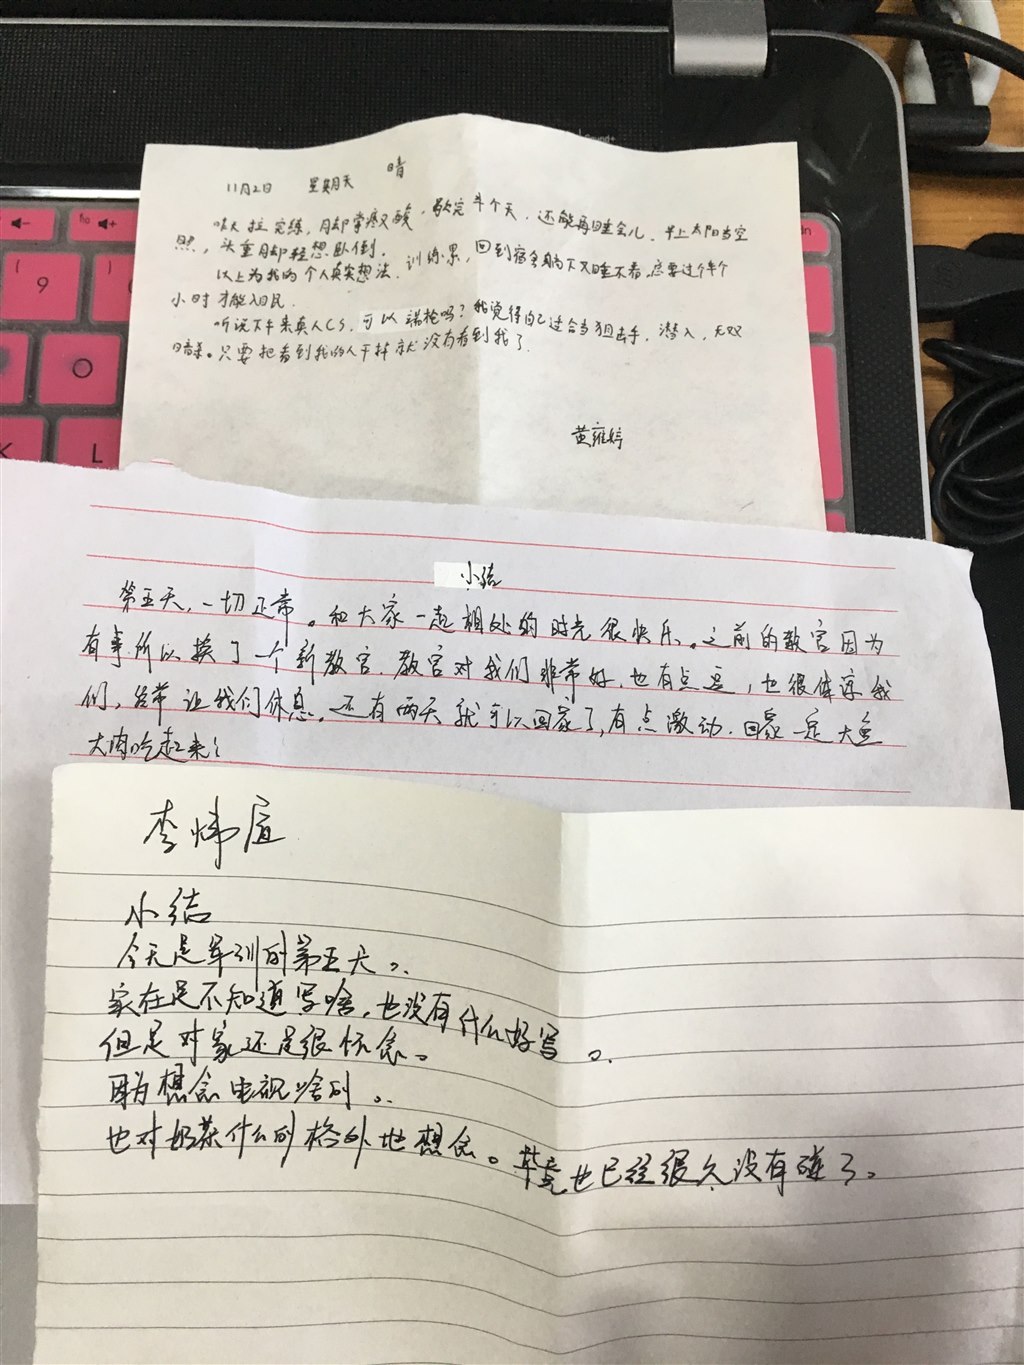 11月2日 星期天 晴
昨天拉完练,脚掌疼又酸,歇完半个天,还能再睡会儿,早上太阳当空
照,头重脚轻想卧倒。
以上为我的个人真实想法,训练累,回到宿舍躺下又睡不着,总要过个半个
小时才能入眠。
听说下午来真人CS,可以诺枪吗?我觉得自己适合当狙击手,潜入,无双
暗杀。只要把看到我的人干掉就没有看到我了。
黄雍婷
小结
第五天,一切正常。和大家一起相处的时光很快乐。之前的教官因为
有事所以换了一个新教官,教官对我们非常好,也有点逗,也很体谅我
们,经常让我们休息,还有两天就可以回家了,有点激动,回家一定大鱼
大肉吃起来!
李炜
小结
今天是军训的第五天。.
实在是不知道写啥,也没有什么好写。.
但是对家还是很怀念。
因为想念电视啥的。.
也对奶茶什么的格外地想念。毕竟也已经很久没有碰了。
9
O
K
L